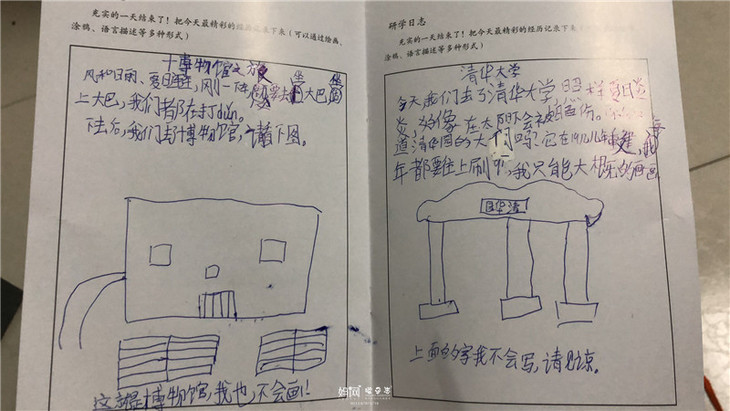 充实的一天结束了！把今天最精彩的经历记录下来（可以通过绘画、
涂鸦、语言描述等多种形式）
博物馆之旅
风和日丽，夏日炎炎，刚一下
大巴
上大巴，我们都在打dǔn。
下去后，我们去博物馆，请看下图。
这就是博物馆，我也不会画！
研学日志
充实的一天结束了！把今天最精彩的经历记录下来
涂鸦、语言描述等多种形式）
清华大学
今天我们去了清华大学，
夏日炎
炎，好像在太阳下会被晒伤。
道清华园的大门吗？它在
重建，每
年都要往上刷，我只能大概的画画
清华
上面的字我不会写，请见谅。
妈网